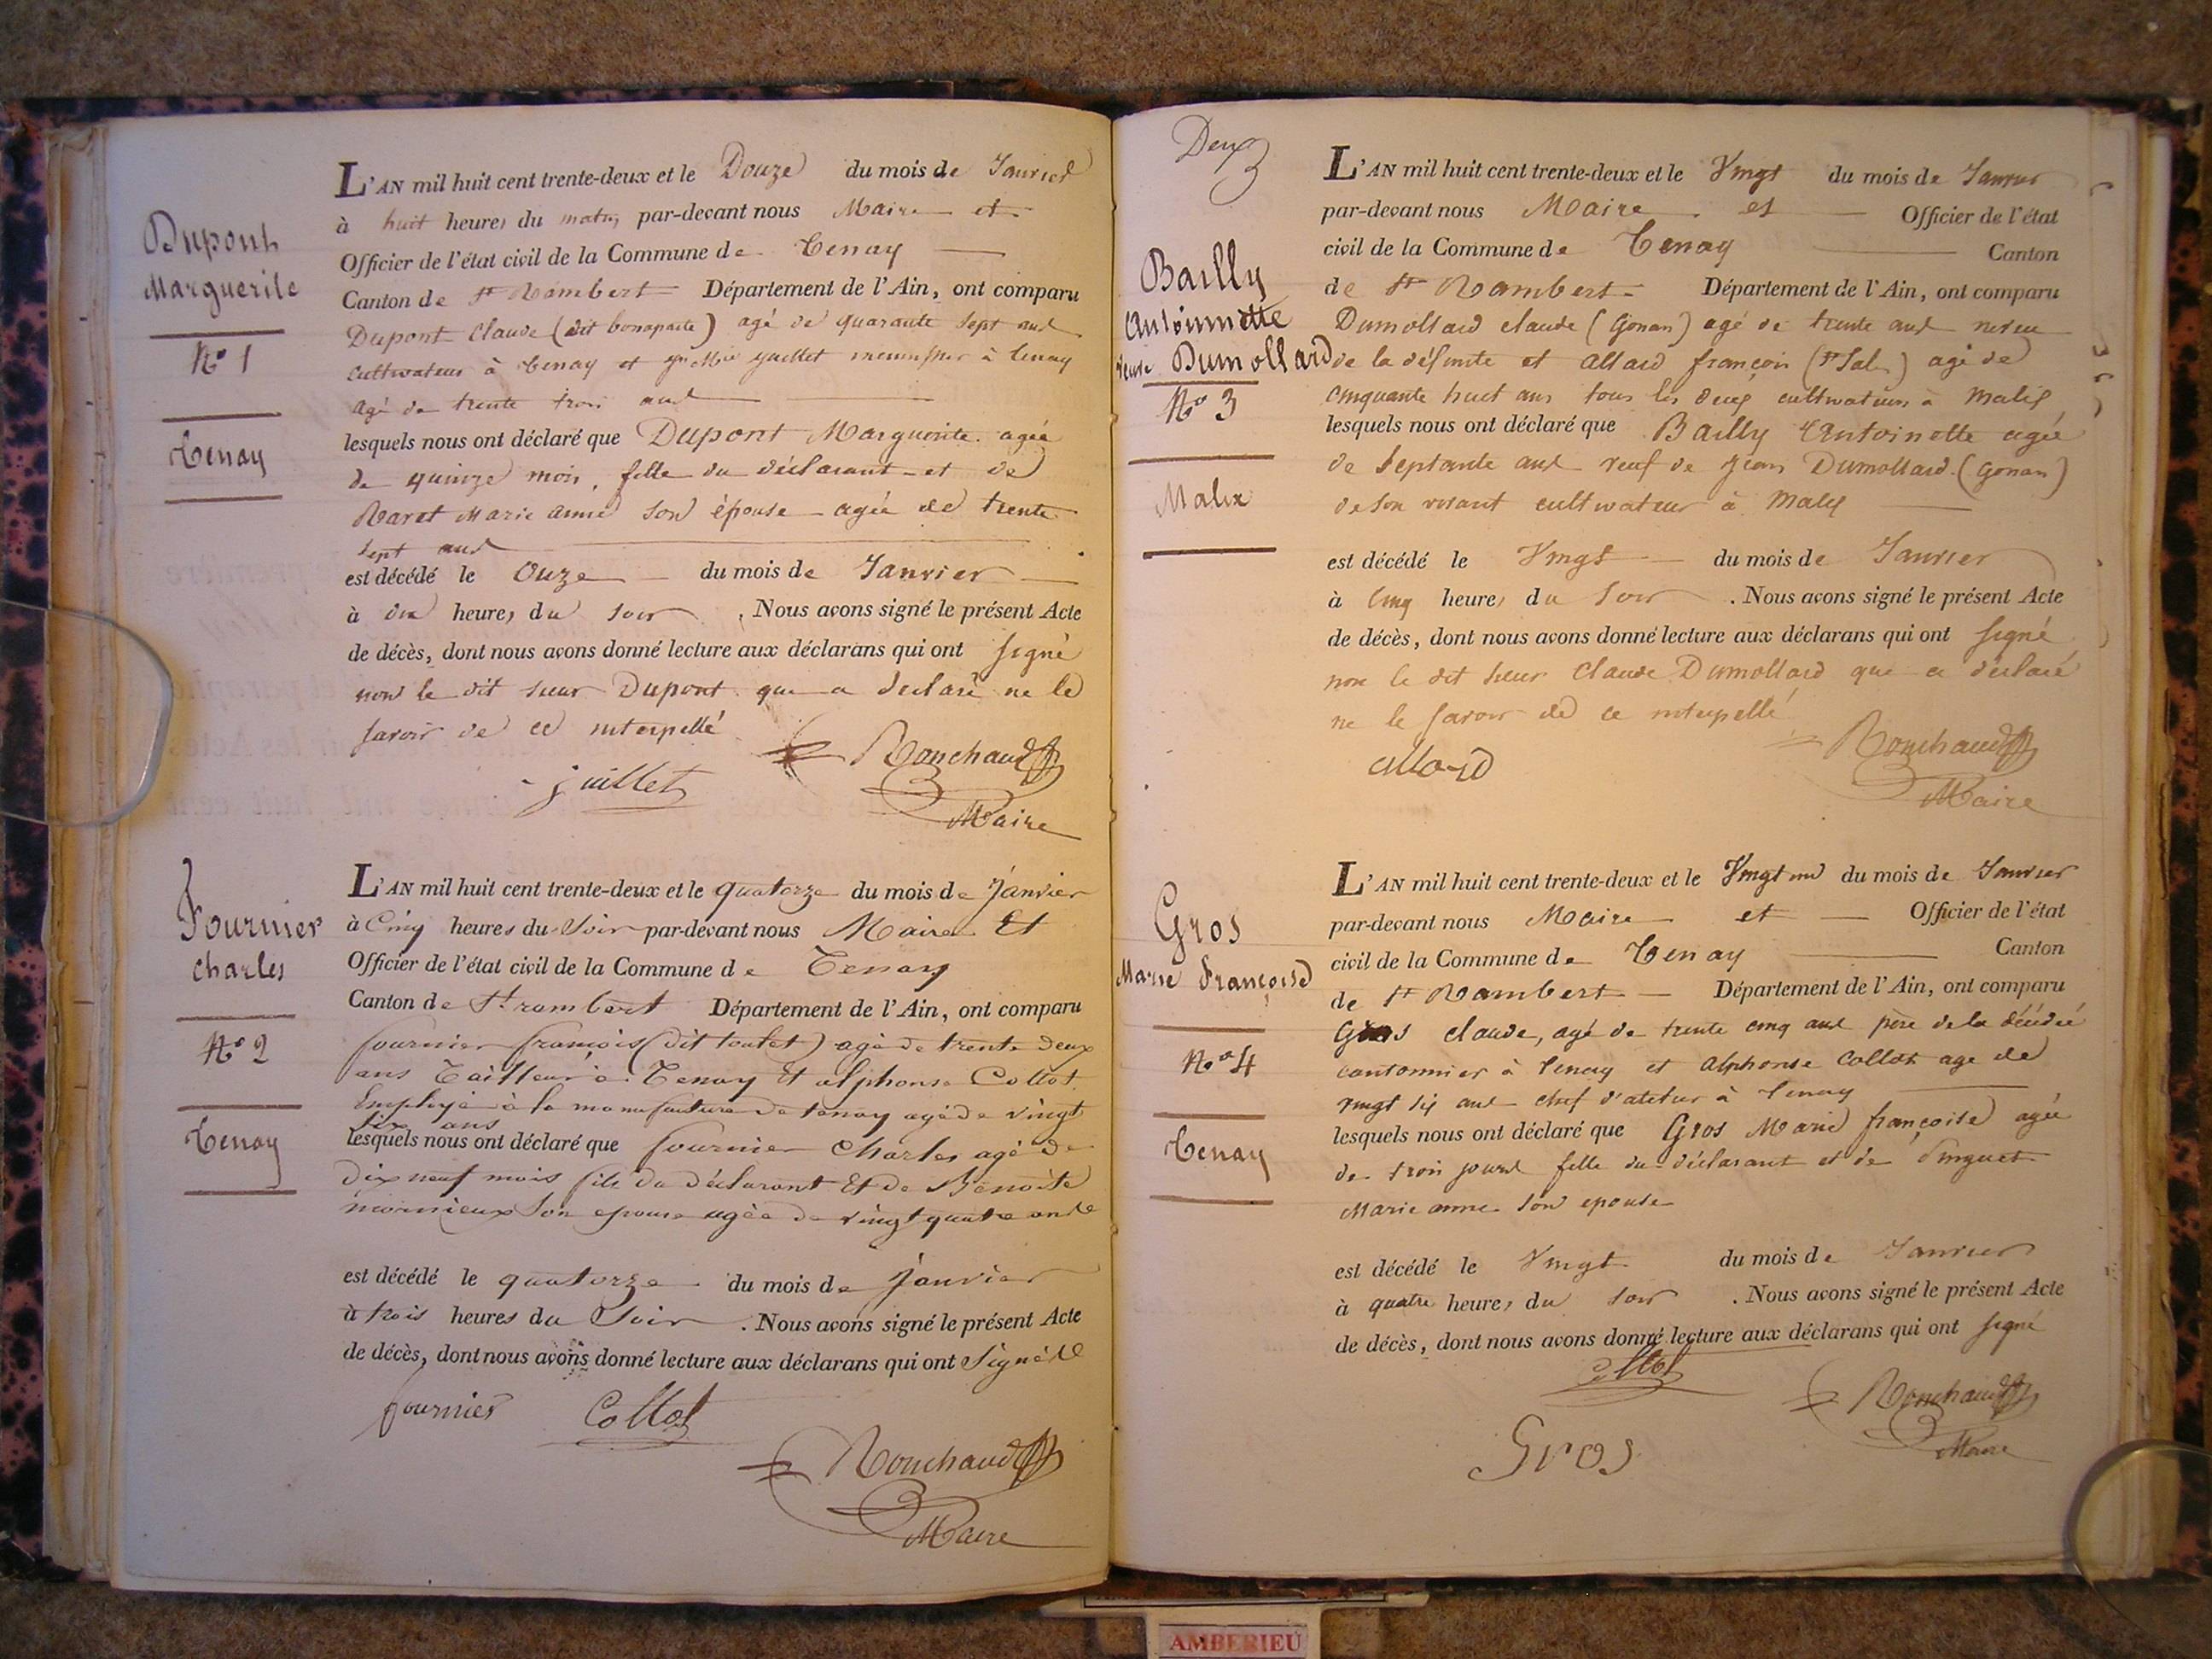 Dupont
Marguerite
N° 1
Tenay
L'AN mil huit cent trente-deux et le Douze du mois de Janvier
à huit heures du matin par-devant nous Maire et
Officier de l'état civil de la Commune de Tenay
Canton de St Rambert Département de l'Ain, ont comparu
Dupont Claude (dit bonaparte) agé de quarante sept ans
cultivateur à Tenay et juillet à Tenay
agé de trente trois ans
lesquels nous ont déclaré que Dupont Marguerite agée
de quinze mois, fille du déclarant et de
Ravet Marie anne son épouse agée de trente
sept ans
est décédé le Onze du mois de Janvier
à dix heures du soir . Nous avons signé le présent Acte
de décès, dont nous avons donné lecture aux déclarans qui ont signé
non le dit sieur Dupont que a déclaré ne le
savoir de ce interpellé
juillet
Ronchaud
Maire
Fournier
Charles
N° 2
Tenay
L'AN mil huit cent trente-deux et le quatorze du mois de Janvier
à Cinq heures du Soir par-devant nous Maire Et
Officier de l'état civil de la Commune de Tenay
Canton de St rambert Département de l'Ain, ont comparu
fournier françois (dit toutet) agé de trente deux
ans Tailleur à Tenay Et alphonse Collot
Employé à la manufacture de tenay agé de vingt
six ans
lesquels nous ont déclaré que fournier Charles agé de
dix neuf mois fils du déclarant Et de Benoite
mornieux Son epouse agée de vingt quatre ans
est décédé le quatorze du mois de Janvier
à trois heures du Soir . Nous avons signé le présent Acte
de décès, dont nous avons donné lecture aux déclarans qui ont Signé
fournier Collot
Ronchaud
Maire
Deux
Bailly
Antoinette
veuve Dumollard
N° 3
Malix
L'AN mil huit cent trente-deux et le Vingt du mois de Janvier
par-devant nous Maire et Officier de l'état
civil de la Commune de Tenay Canton
de St Rambert Département de l'Ain, ont comparu
Dumollard claude (Gonan) agé de trente ans neveu
de la défunte et allard françois agé de
cinquante huit ans tous les deux cultivateurs à Malix
lesquels nous ont déclaré que Bailly Antoinette agée
de Septante ans veuf de jean Dumollard (Gonan)
de son vivant cultivateur à Malix
est décédé le Vingt du mois de Janvier
à Cinq heures du Soir . Nous avons signé le présent Acte
de décès, dont nous avons donné lecture aux déclarans qui ont signé
non le dit sieur Claude Dumollard que a déclaré
ne le savoir de ce interpellé
allard
Ronchaud
Maire
Gros
Marie Françoise
N° 4
Tenay
L'AN mil huit cent trente-deux et le Vingt un du mois de Janvier
par-devant nous Maire et Officier de l'état
civil de la Commune de Tenay Canton
de St Rambert Département de l'Ain, ont comparu
Gros claude, agé de trente cinq ans père de la décédée
cantonnier à Tenay et Alphonse Collot age de
vingt six ans chef d'atelier à Tenay
lesquels nous ont déclaré que Gros Marie françoise agée
de trois jours fille du déclarant et de Pinguet
Marie anne son epouse
est décédé le Vingt du mois de Janvier
à quatre heures du soir . Nous avons signé le présent Acte
de décès, dont nous avons donné lecture aux déclarans qui ont signé
Collot
Ronchaud
Maire
Gros
AMBERIEU